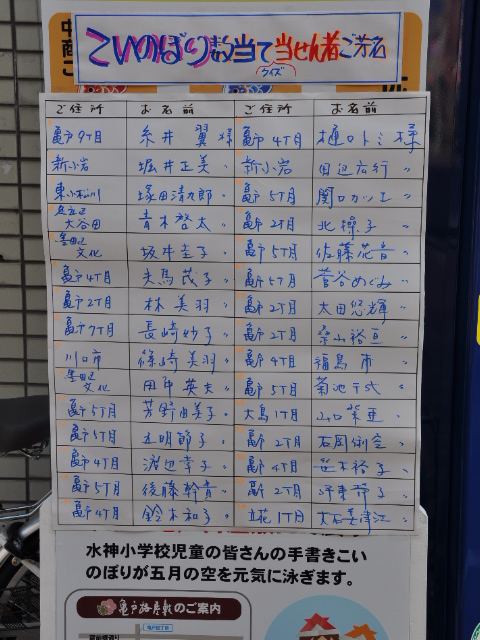 こいのぼり数当て当せん者ご芳名
クイズ
ご住所 お名前 ご住所 お名前
亀戸9丁目 糸井 翼 様 亀戸4丁目 樋口トミ 様
新小岩 堀井正美 〃 新小岩 田辺広行 〃
東小松川 塚田清九郎 〃 亀戸5丁目 関口カツエ 〃
足立区大谷田 青木啓太 〃 亀戸2丁目 北 操子 〃
墨田区文化 坂井圭子 〃 亀戸5丁目 佐藤花音 〃
亀戸4丁目 夫馬茂子 〃 亀戸5丁目 菅谷めぐみ 〃
亀戸2丁目 林 美羽 〃 亀戸2丁目 太田悠輝 〃
亀戸7丁目 長崎妙子 〃 亀戸2丁目 桑山裕亘 〃
川口市 篠崎美羽 〃 亀戸4丁目 福島 〃
墨田区文化 田中英夫 〃 亀戸5丁目 菊池 〃
亀戸5丁目 芳野由美子 〃 大島1丁目 山口 〃
亀戸5丁目 五明節子 〃 亀戸2丁目 石岡 〃
亀戸4丁目 渡辺幸子 〃 亀戸4丁目 並木裕子 〃
亀戸5丁目 後藤幹青 〃 亀戸2丁目 静子 〃
亀戸4丁目 鈴木和子 〃 立花1丁目 大石美津江 〃
水神小学校児童の皆さんの手書きこい
のぼりが五月の空を元気に泳ぎます。
亀戸梅屋敷のご案内